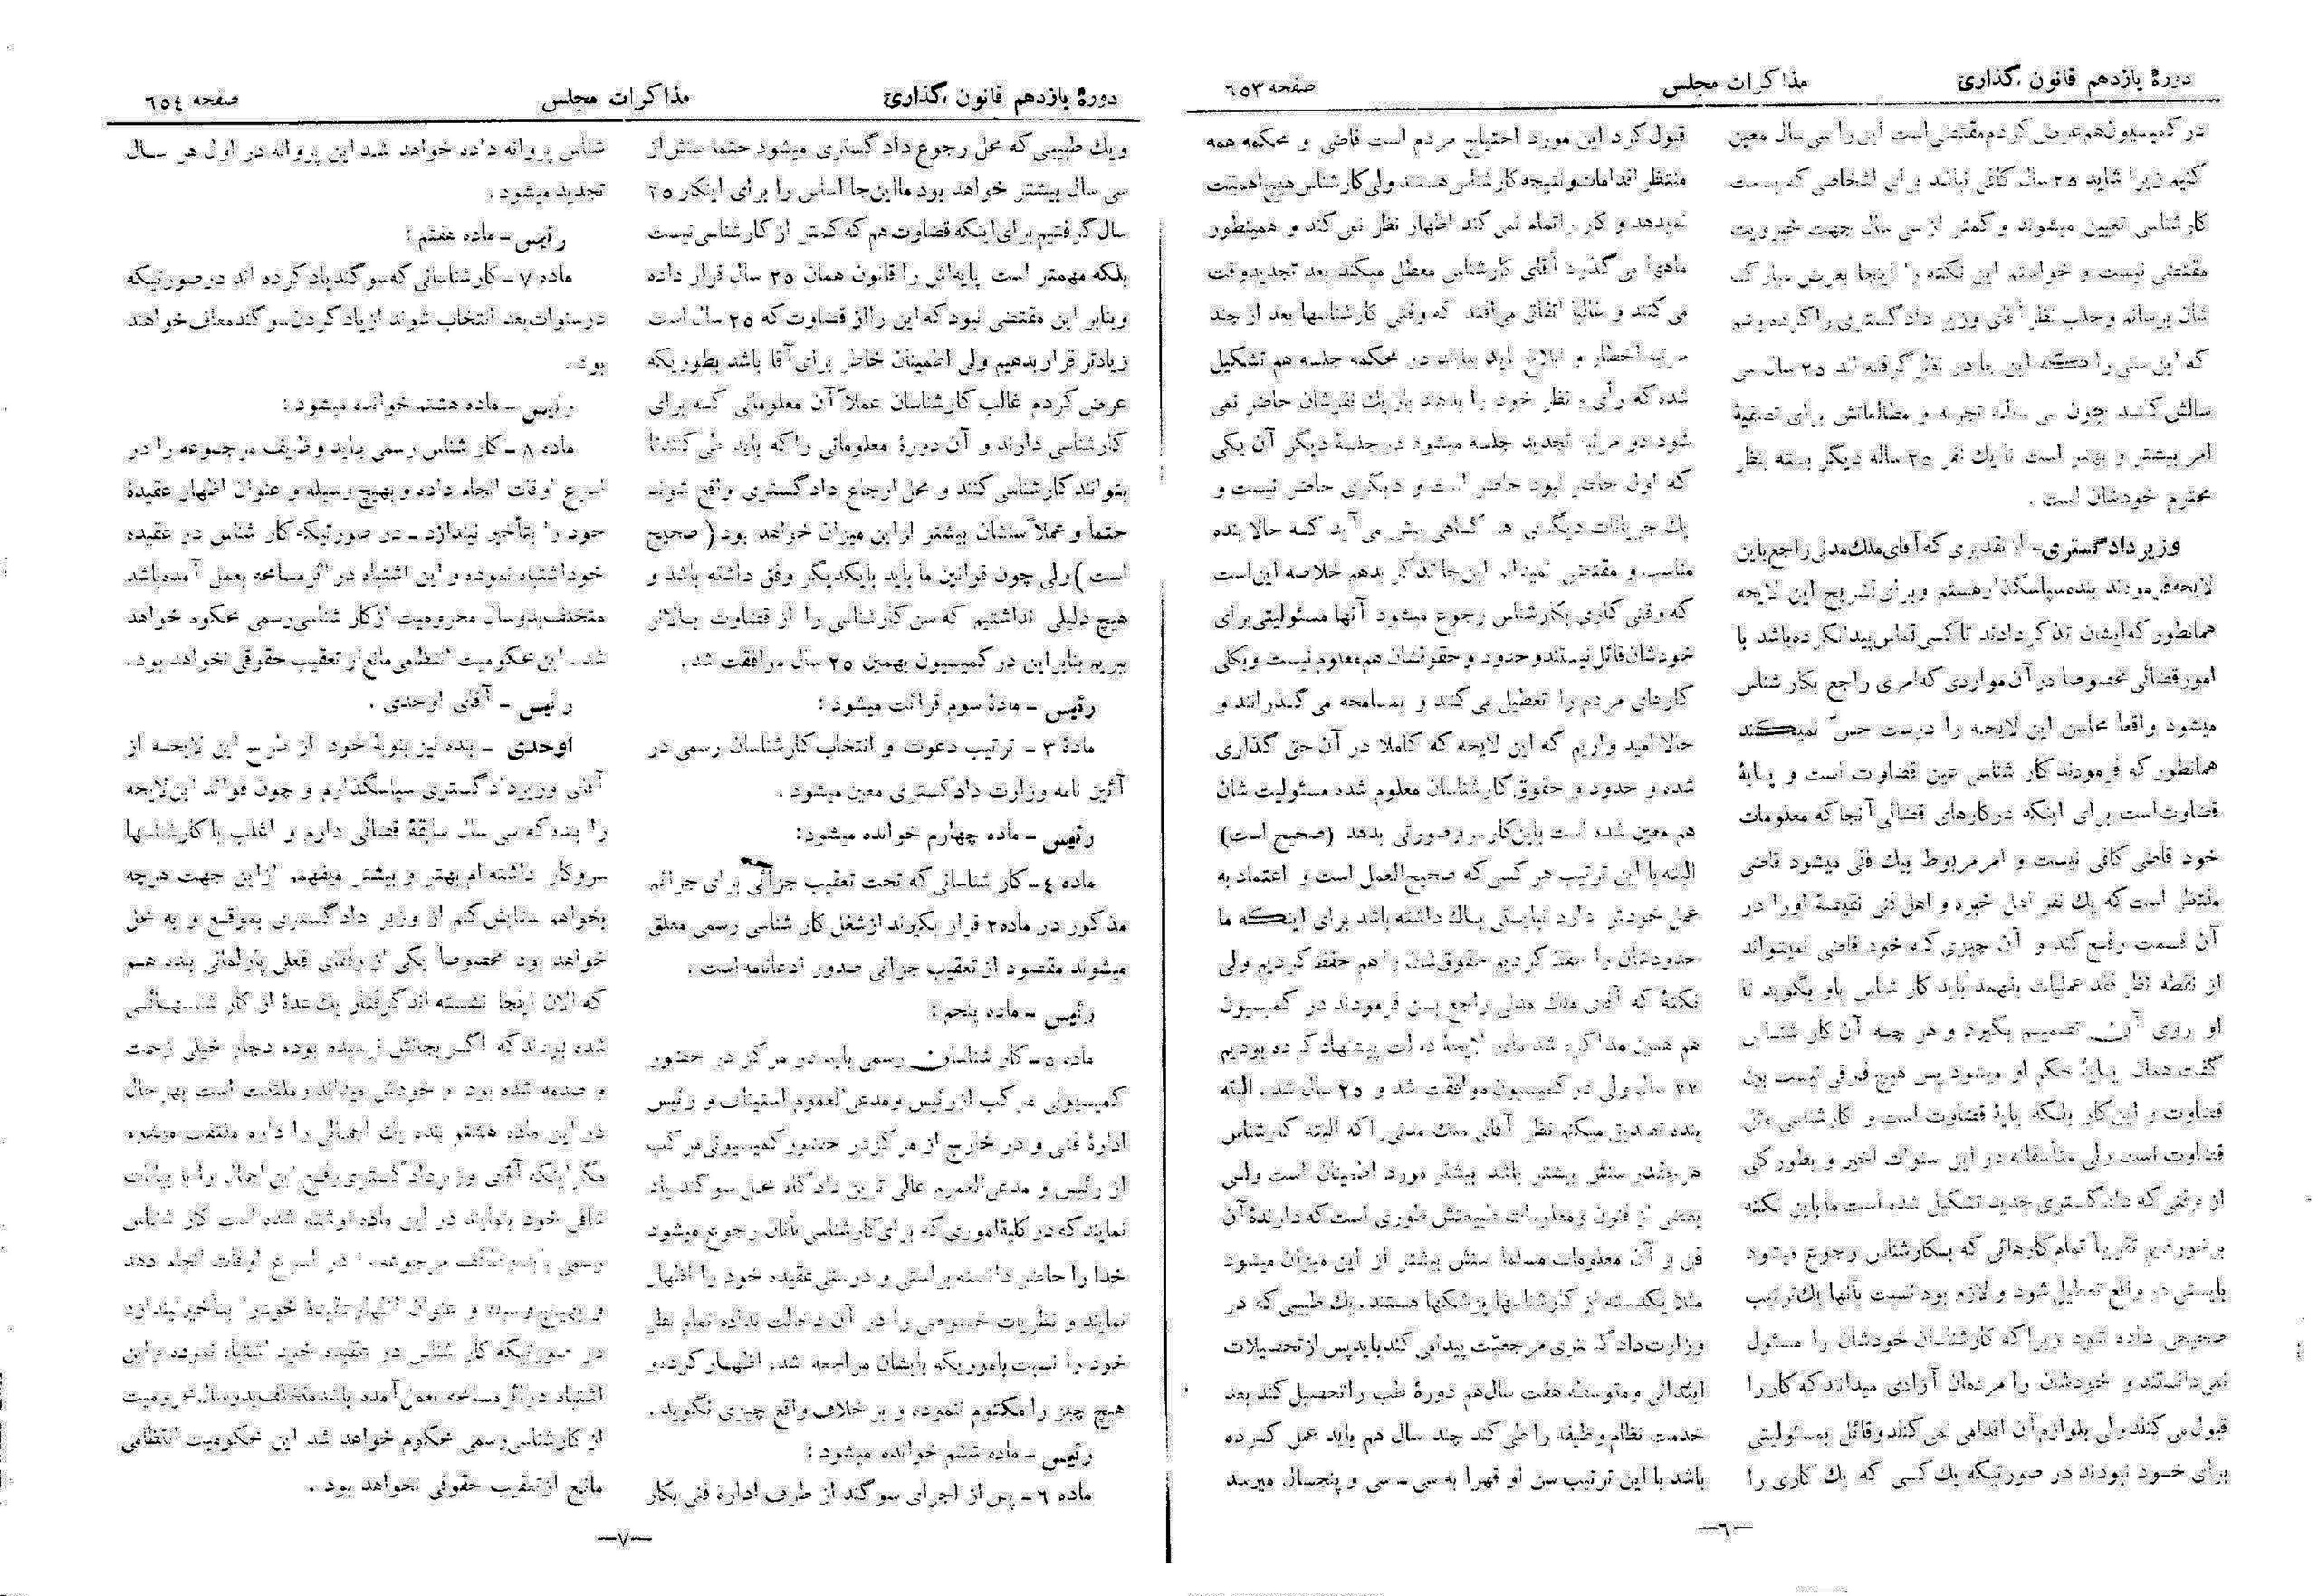 دورهٔ یازدهم قانون گذاری
مذاکرات مجلس
صفحه ٦٥٣
در کمیسیون هم عرض کردم مقتضی است این را سی سال معین
کنیم زیرا شاید ٢٥ سال کافی نباشد برای اشخاصی که بسمت
کارشناسی تعیین میشوند و کمتر از سی سال جهت خبرویت
مقتضی نیست و خواستم این نکته را اینجا بعرض مبارک
شان برسانم و جلب نظر آقای وزیر دادگستری را کرده باشم
که این سنی را که این جا در نظر گرفته اند ٢٥ سال سی
سالش کنند چون سی ساله تجربه و مطالعاتش برای تصفیهٔ
امر بیشتر و بهتر است تا یك نفر ٢٥ ساله دیگر بسته بنظر
محترم خودشان است .
وزیر دادگستری- از تقدیری که آقای ملك مدنی راجع باین
لایحه فرمودند بنده سپاسگذار هستم و برای تشریح این لایحه
همانطور که ایشان تذکر دادند تا کسی تماس پیدا نکرده باشد با
امور قضائی مخصوصا در آن مواردی که امری راجع بکارشناس
میشود واقعاً محاسن این لایحه را درست حس نمیکند
همانطور که فرمودند کار شناسی عین قضاوت است و پایهٔ
قضاوت است برای اینکه در کارهای قضائی آنجا که معلومات
خود قاضی کافی نیست و امر مربوط بیك فنی میشود قاضی
منتظر است که یك نفر اهل خبره و اهل فنی نقیصهٔ او را در
آن قسمت رفع کند و آن چیزی که خود قاضی نمیتواند
از نقطه نظر فقد عملیات بفهمد باید کار شناس باو بگوید تا
او روی آن تصمیم بگیرد و هر چه آن کار شناس
گفت همان پایهٔ حکم او میشود پس هیچ فرقی نیست بین
قضاوت و این کار بلکه پایهٔ قضاوت است و کارشناسی مثل
قضاوت است ولی متأسفانه در این سنوات اخیر و بطور کلی
از وقتی که دادگستری جدید تشکیل شده است ما باین نکته
برخوردیم تقریباً تمام کارهائی که بکارشناس رجوع میشود
بایستی در واقع تعطیل شود و لازم بود نسبت بآنها یك ترتیب
صحیحی داده شود زیرا که کارشناسان خودشان را مسئول
نمی دانستند و خودشان را مردمان آزادی میدانند که کار را
قبول می کنند ولی بلوازم آن اقدامی نمی کنند و قائل بمسئولیتی
برای خود نبودند در صورتیکه یك کسی که یك کاری را
قبول کرد این مورد احتیاج مردم است قاضی و محکمه همه
منتظر اقدامات و نتیجه کارشناس هستند ولی کارشناس هیچ اهمیت
نمیدهد و کار را تمام نمی کند اظهار نظر نمی کند و همینطور
ماهها می گذرد آقای کارشناس معطل میکند بعد تجدید وقت
می کنند و غالباً اتفاق می افتد که وقتی کارشناسها بعد از چند
مرتبه اخطار و ابلاغ باید بیایند در محکمه جلسه هم تشکیل
شده که رأی و نظر خود را بدهند باز یك نفرشان حاضر نمی
شود دو مرتبه تجدید جلسه میشود در جلسهٔ دیگر آن یکی
که اول حاضر نبود حاضر است و دیگری حاضر نیست و
یك جریانات دیگری هم گاهی پیش می آید که حالا بنده
مناسب و مقتضی نمیدانم این جا تذکر بدهم خلاصه این است
که وقتی کاری بکارشناس رجوع میشود آنها مسئولیتی برای
خودشان قائل نیستند و حدود و حقوقشان هم معلوم نیست و بکلی
کارهای مردم را تعطیل می کنند و بمسامحه می گذرانند و
حالا امید واریم که این لایحه که کاملا در آن حق گذاری
شده و حدود و حقوق کارشناسان معلوم شده مسئولیت شان
هم معین شده است باین کار سر و صورتی بدهد (صحیح است)
البته با این ترتیب هر کسی که صحیح العمل است و اعتماد به
عمل خودش دارد نبایستی باك داشته باشد برای اینکه ما
حدودشان را حفظ کردیم حقوقشان را هم حفظ کردیم ولی
نکتهٔ که آقای ملك مدنی راجع بسن فرمودند در کمیسیون
هم همین مذاکره شد ماده لایحهٔ دولت پیشنهاد کرده بودیم
٢٧ سال ولی در کمیسیون موافقت شد و ٢٥ سال شد . البته
بنده تصدیق میکنم نظر آقای ملك مدنی را که البته کارشناس
هر چقدر سنش بیشتر باشد بیشتر مورد اطمینان است ولی
بعضی از فنون و معلومات طبیعتش طوری است که دارندهٔ آن
فن و آن معلومات مسلماً سنش بیشتر از این میزان میشود
مثلا یکدسته از کارشناسها پزشکها هستند . یك طبیبی که در
وزارت دادگستری مرجعیت پیدا می کند باید پس از تحصیلات
ابتدائی و متوسطه هفت سال هم دورهٔ طب را تحصیل کند بعد
خدمت نظام وظیفه را طی کند چند سال هم باید عمل کرده
باشد با این ترتیب سن او قهراً به سی - سی و پنجسال میرسد
—٦—
دورهٔ یازدهم قانون گذاری
مذاکرات مجلس
صفحه ٦٥٤
و یك طبیبی که محل رجوع دادگستری میشود حتماً سنش از
سی سال بیشتر خواهد بود ما این جا اساس را برای اینکار ٢٥
سال گرفتیم برای اینکه قضاوت هم که کمتر از کارشناسی نیست
بلکه مهمتر است پایه اش را قانون همان ٢٥ سال قرار داده
و بنابر این مقتضی نبود که این را از قضاوت که ٢٥ سال است
زیادتر قرار بدهیم ولی اطمینان خاطر برای آقا باشد بطوریکه
عرض کردم غالب کارشناسان عملاً آن معلوماتی که برای
کارشناسی دارند و آن دورهٔ معلوماتی را که باید طی کنند تا
بتوانند کارشناسی کنند و محل ارجاع دادگستری واقع شوند
حتماً و عملاً سنشان بیشتر از این میزان خواهد بود ( صحیح
است ) ولی چون قوانین ما باید بایکدیگر وفق داشته باشد و
هیچ دلیلی نداشتیم که سن کارشناسی را از قضاوت بالاتر
ببریم بنابراین در کمیسیون بهمین ٢٥ سال موافقت شد .
رئیس - مادهٔ سوم قرائت میشود :
مادهٔ ٣ - ترتیب دعوت و انتخاب کارشناسان رسمی در
آئین نامه وزارت دادگستری معین میشود .
رئیس - ماده چهارم خوانده میشود:
ماده ٤ - کار شناسانی که تحت تعقیب جزائی برای جرائم
مذکور در ماده ٢ قرار بگیرند از شغل کار شناسی رسمی معلق
میشوند مقصود از تعقیب جزائی صدور ادعانامه است .
رئیس - ماده پنجم :
ماده ٥ - کار شناسان رسمی باید در مرکز در حضور
کمیسیونی مرکب از رئیس و مدعی العموم استیناف و رئیس
ادارهٔ فنی و در خارج از مرکز در حضور کمیسیونی مرکب
از رئیس و مدعی العموم عالی ترین دادگاه محل سوگند یاد
نمایند که در کلیهٔ اموری که برای کارشناسی بآنان رجوع میشود
خدا را حاضر دانسته براستی و درستی عقیده خود را اظهار
نمایند و نظریات خصوصی را در آن دخالت نداده تمام نظر
خود را نسبت باموریکه بایشان مراجعه شده اظهار کرده و
هیچ چیز را مکتوم ننموده و بر خلاف واقع چیزی نگوید .
رئیس - ماده ششم خوانده میشود :
ماده ٦ - پس از اجرای سوگند از طرف ادارهٔ فنی بکار
شناس پروانه داده خواهد شد این پروانه در اول هر سال
تجدید میشود .
رئیس - ماده هفتم :
ماده ٧ - کارشناسانی که سوگند یاد کرده اند در صورتیکه
در سنوات بعد انتخاب شوند از یاد کردن سوگند معاف خواهند
بود .
رئیس - ماده هشتم خوانده میشود:
ماده ٨ - کار شناس رسمی باید وظایف مرجوعه را در
اسرع اوقات انجام داده و بهیچ وسیله و عنوان اظهار عقیدهٔ
خود را بتأخیر نیندازد - در صورتیکه کار شناس در عقیده
خود اشتباه نموده و این اشتباه در اثر مسامحه بعمل آمده باشد
متخلف بدو سال محرومیت از کار شناسی رسمی محکوم خواهد
شد . این محکومیت انتظامی مانع از تعقیب حقوقی نخواهد بود .
رئیس - آقای اوحدی .
اوحدی - بنده نیز بنوبهٔ خود از طرح این لایحه از
آقای وزیر دادگستری سپاسگذارم و چون فوائد این لایحه
را بنده که سی سال سابقهٔ قضائی دارم و اغلب با کارشناسها
سروکار داشته ام بهتر و بیشتر میفهمم از این جهت هر چه
بخواهم ستایش کنم از وزیر دادگستری بموقع و به محل
خواهد بود مخصوصاً یکی از رفقای فعلی پارلمانی بنده هم
که الان اینجا نشسته اند گرفتار یك عدهٔ از کار شناسهائی
شده بودند که اگر بجانش نرسیده بوده دچار خیلی زحمت
و صدمه شده بود و خودش میداند و ملتفت است بهر حال
در این ماده هشتم بنده یك اجمالی را دارم ملتفت میشوم
مگر اینکه آقای وزیر دادگستری رفع این اجمال را با بیانات
شافی خود بنمایند در این ماده نوشته شده است کار شناس
رسمی باید وظائف مرجوعه را در اسرع اوقات انجام دهد
و بهیچ وسیله و عنوان اظهار عقیدهٔ خود را بتأخیر نیندازد
در صورتیکه کار شناس در عقیده خود اشتباه نموده و این
اشتباه در اثر مسامحه بعمل آمده باشد متخلف بدو سال محرومیت
از کارشناسی رسمی محکوم خواهد شد این محکومیت انتظامی
مانع از تعقیب حقوقی نخواهد بود .
—٧—